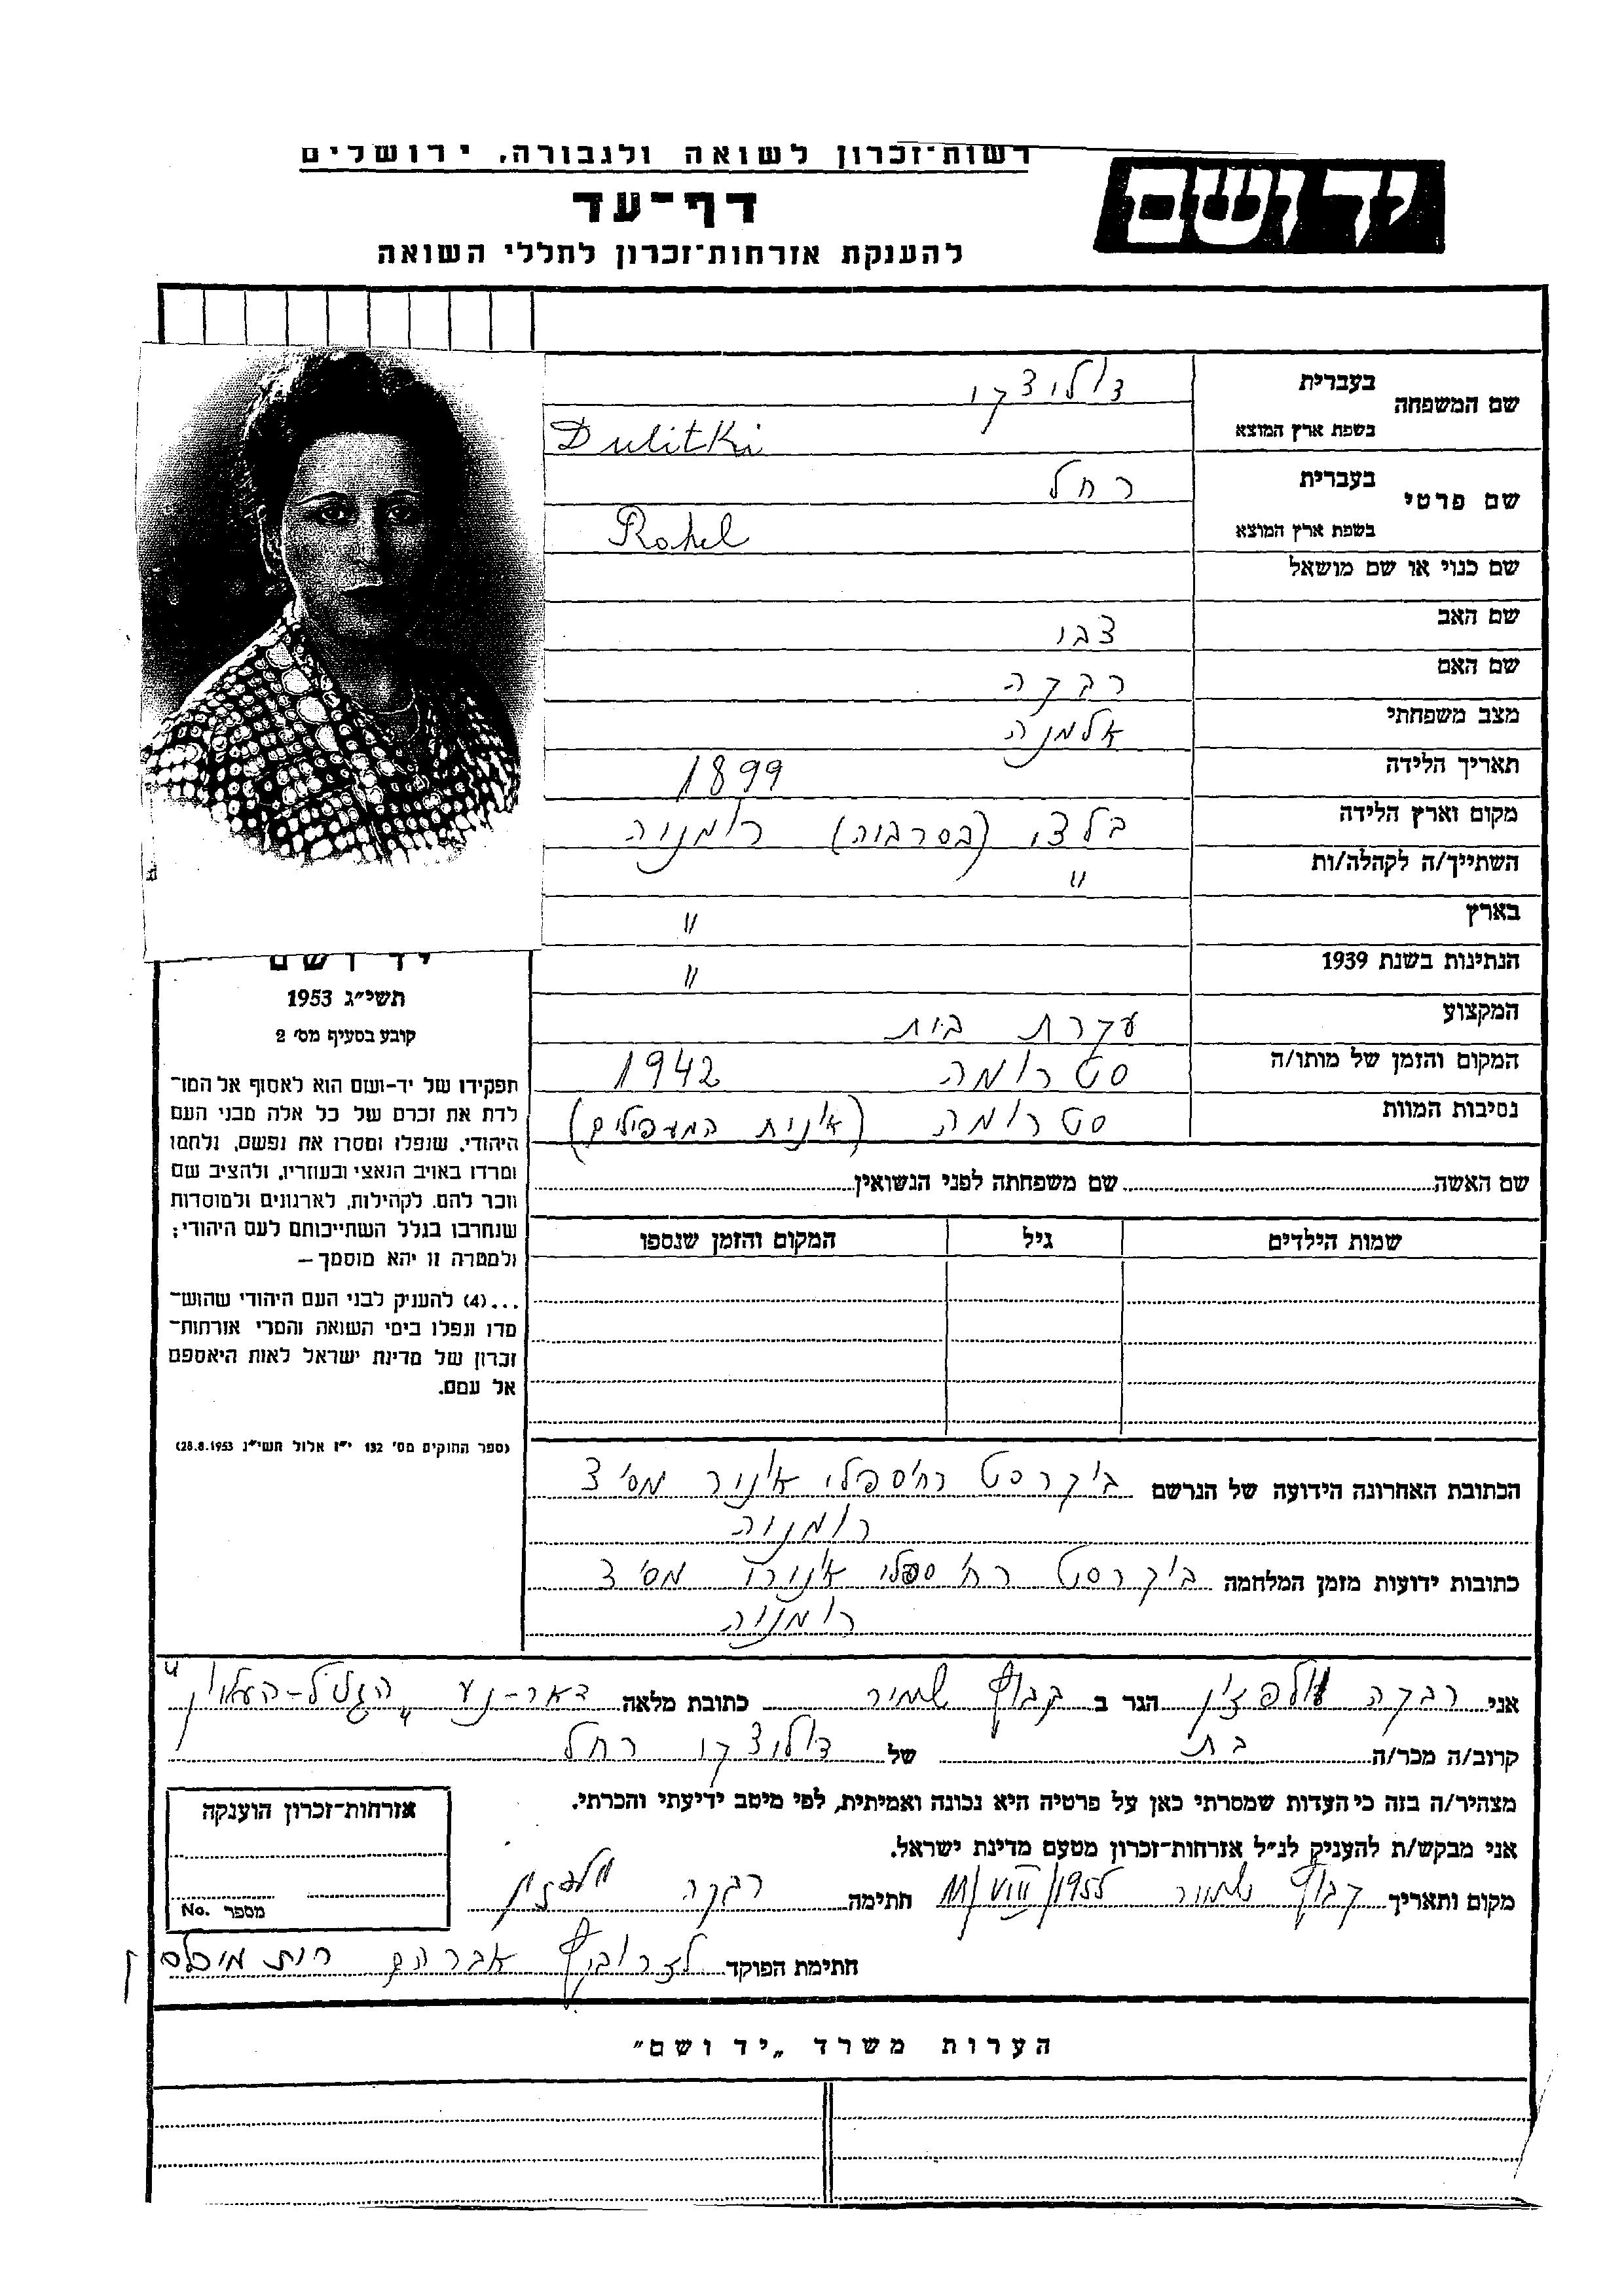 רשות־זכרון לשואה ולגבורה, ירושלים
יד ושם
דף־עד
להענקת אזרחות־זכרון לחללי השואה
שם המשפחה
בעברית
דולוצקי
בשפת ארץ המוצא
Dulitki
שם פרטי
בעברית
רחל
בשפת ארץ המוצא
Rahel
שם כנוי או שם מושאל
שם האב
צבי
שם האם
רבקה
מצב משפחתי
אלמנה
תאריך הלידה
1899
מקום וארץ הלידה
בלצי (בסרביה) רומניה
השתייך/ה לקהלה/ות
"
בארץ
"
הנתינות בשנת 1939
"
המקצוע
עקרת בית
המקום והזמן של מותו/ה
סטרומה 1942
נסיבות המוות
סטרומה (אנית המעפילים)
יד ושם
תשי"ג 1953
קובע בסעיף מס' 2
תפקידו של יד-ושם הוא לאסוף אל המו־
לדת את זכרם של כל אלה מבני העם
היהודי, שנפלו ומסרו את נפשם, נלחמו
ומרדו באויב הנאצי ובעוזריו, ולהציב שם
וזכר להם, לקהילות, לארגונים ולמוסדות
שנחרבו בגלל השתייכותם לעם היהודי;
ולמטרה זו יהא מוסמך –
...(4) להעניק לבני העם היהודי שהוש־
מדו ונפלו בימי השואה והמרי אזרחות־
זכרון של מדינת ישראל לאות היאספם
אל עמם.
(ספר החוקים מס' 132 י"ז אלול תשי"ג 28.8.1953)
שם האשה שם משפחתה לפני הנשואין
שמות הילדים גיל המקום והזמן שנספו
הכתובת האחרונה הידועה של הנרשם בוקרסט רח' ספלי מס' 3
רומניה
כתובות ידועות מזמן המלחמה בוקרסט רח' ספלי מס' 3
רומניה
אני רבקה וולפזון הגר ב קבוץ שמיר כתובת מלאה דאר-נע הגליל-העליון
קרוב/ה מכר/ה בת של דולוצקי רחל
מצהיר/ה בזה כי העדות שמסרתי כאן על פרטיה היא נכונה ואמיתית, לפי מיטב ידיעתי והכרתי.
אני מבקש/ת להעניק לנ"ל אזרחות־זכרון מטעם מדינת ישראל.
מקום ותאריך קבוץ שמיר 11/VIII/1955 חתימה רבקה וולפזון
חתימת הפוקד אברהם רות
אזרחות־זכרון הוענקה
מספר No.
הערות משרד „יד ושם"